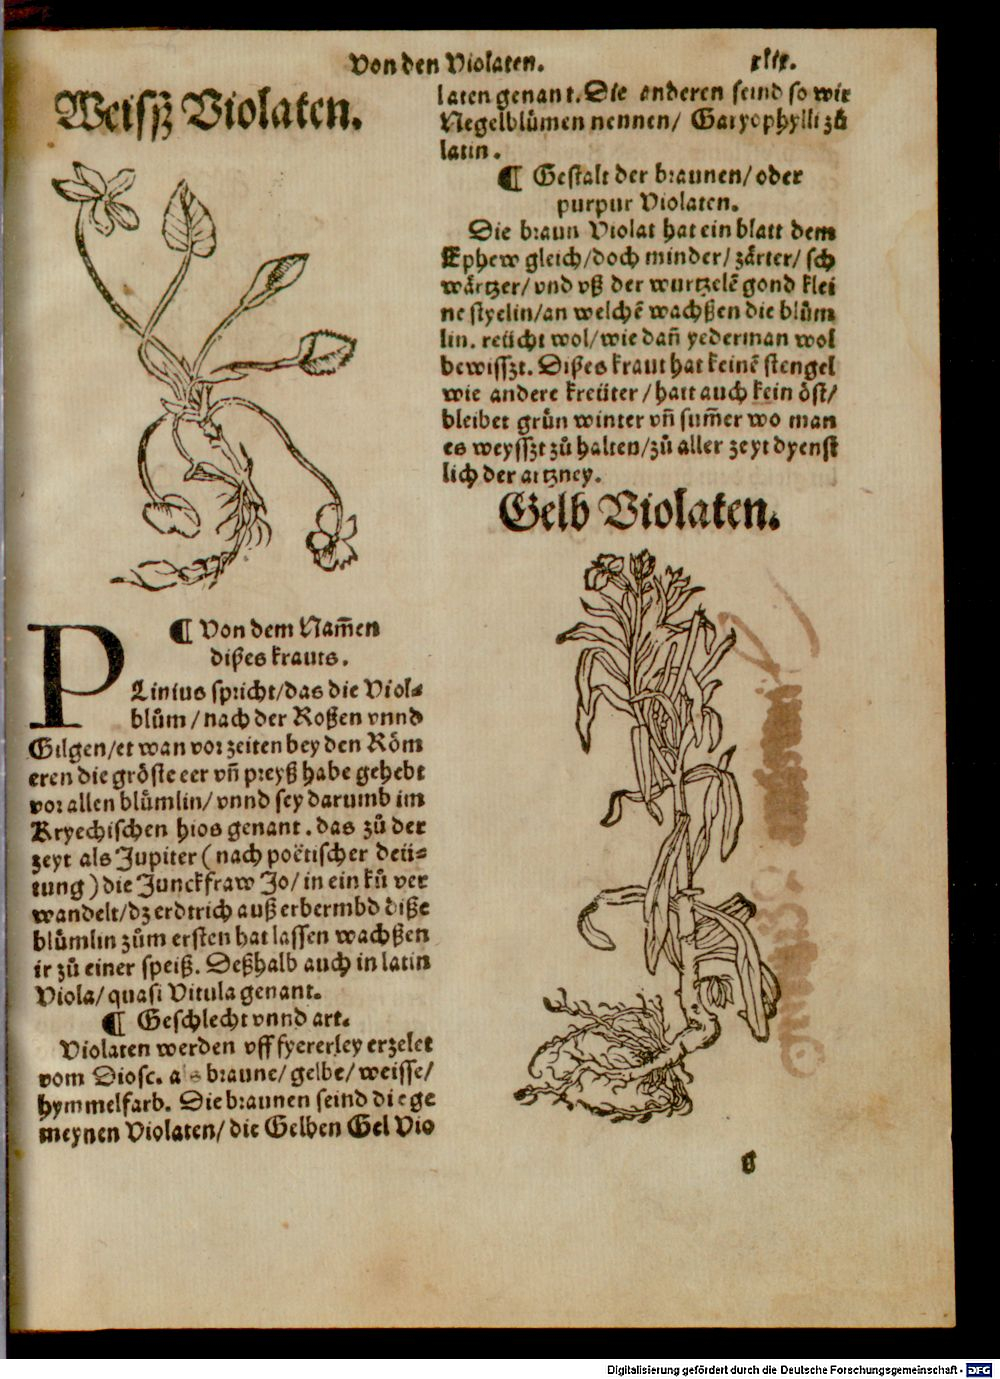 Von den Violaten.
xlix.
Weissz Violaten.
¶ Von dem Nam̄en
dißes krauts.
PLinius spricht/das die Viol⸗
blům/nach der Roßen vnnd
Gilgen/etwan vor zeiten bey den Röm
eren die gröste eer vn̄ preyß habe gehebt
vor allen blůmlin/vnnd sey darumb im
Kryechischen hios genant. das zů der
zeyt als Jupiter (nach poëtischer deü⸗
tung) die Junckfraw Jo/in ein ků ver
wandelt/dz erdtrich auß erbermbd diße
blůmlin zům ersten hat lassen wachßen
ir zů einer speiß. Deßhalb auch in latin
Viola/quasi Vitula genant.
¶ Geschlecht vnnd art.
Violaten werden vff fyererley erzelet
vom Diosc. als braune/gelbe/weisse/
hymmelfarb. Die braunen seind die ge
meynen Violaten/die Gelben Gel Vio
laten genant. Die anderen seind so wir
Negelblůmen nennen/ Garyophylli zů
latin.
¶ Gestalt der braunen/oder
purpur Violaten.
Die braun Violat hat ein blatt dem
Ephew gleich/doch minder/zärter/sch
wärtzer/vnd vß der wurtzelē gond klei
ne styelin/an welchē wachßen die blům
lin. reücht wol/wie dan̄ yederman wol
bewisszt. Dißes kraut hat keinē stengel
wie andere kreüter/hatt auch kein öst/
bleibet grůn winter vn̄ sum̄er wo man
es weysszt zů halten/zů aller zeyt dyenst
lich der artzney.
Gelb Violaten.
Digitalisierung gefördert durch die Deutsche Forschungsgemeinschaft - DFG